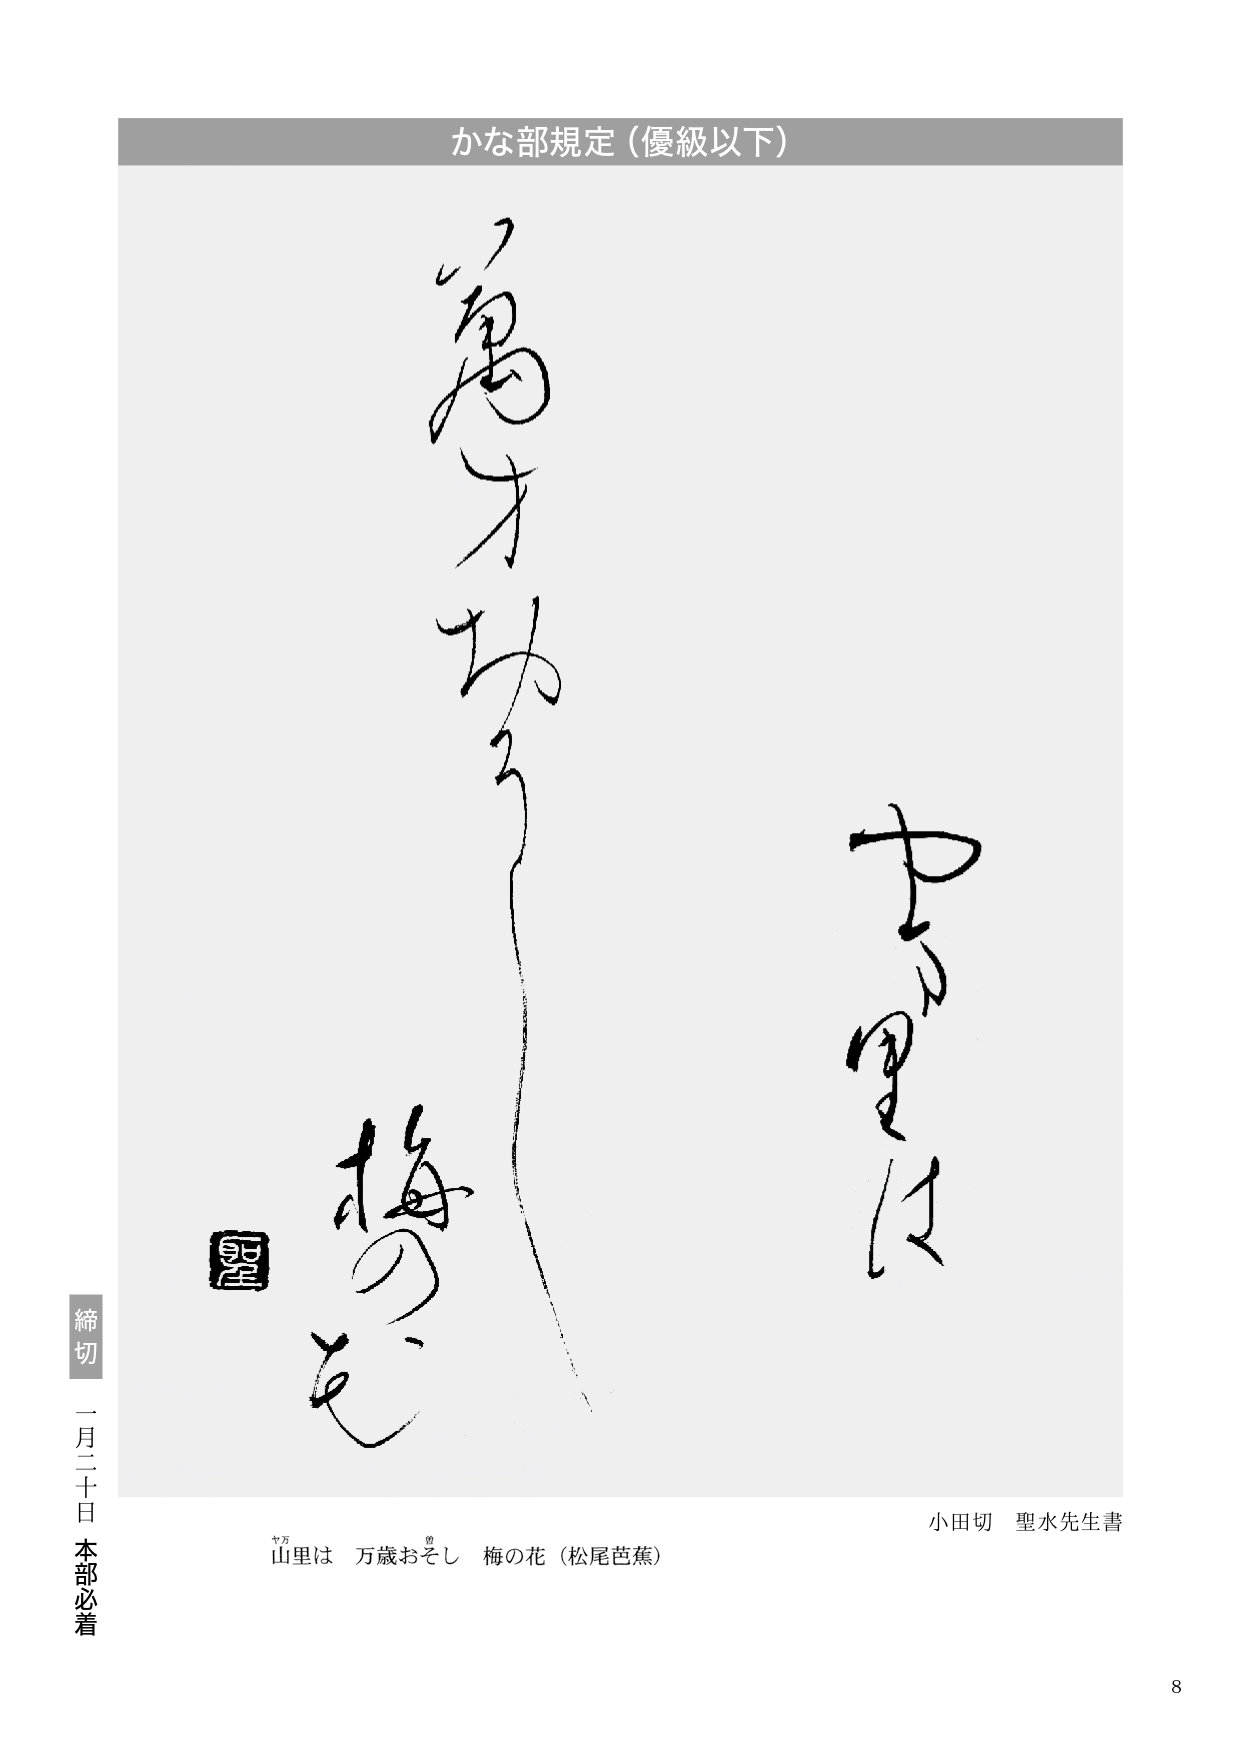 かな部規定（優級以下）
や万里は
萬才おそし
梅の花
聖
小田切　聖水先生書
ヤ万　曽
山里は　万歳おそし　梅の花（松尾芭蕉）
締切　一月二十日　本部必着
8